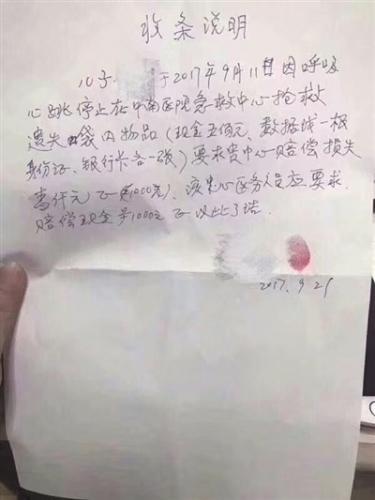 收条说明
儿子 于2017年9月11日因呼吸
心跳停止在中南医院急救中心抢救
遗失袋内物品(现金五佰元、数据线一根
身份证、银行卡各一张)要求贵中心赔偿损失
壹仟元正(¥1000元)、该中心医务人员应要求
赔偿现金¥1000元正以此了结.
2017.9.21